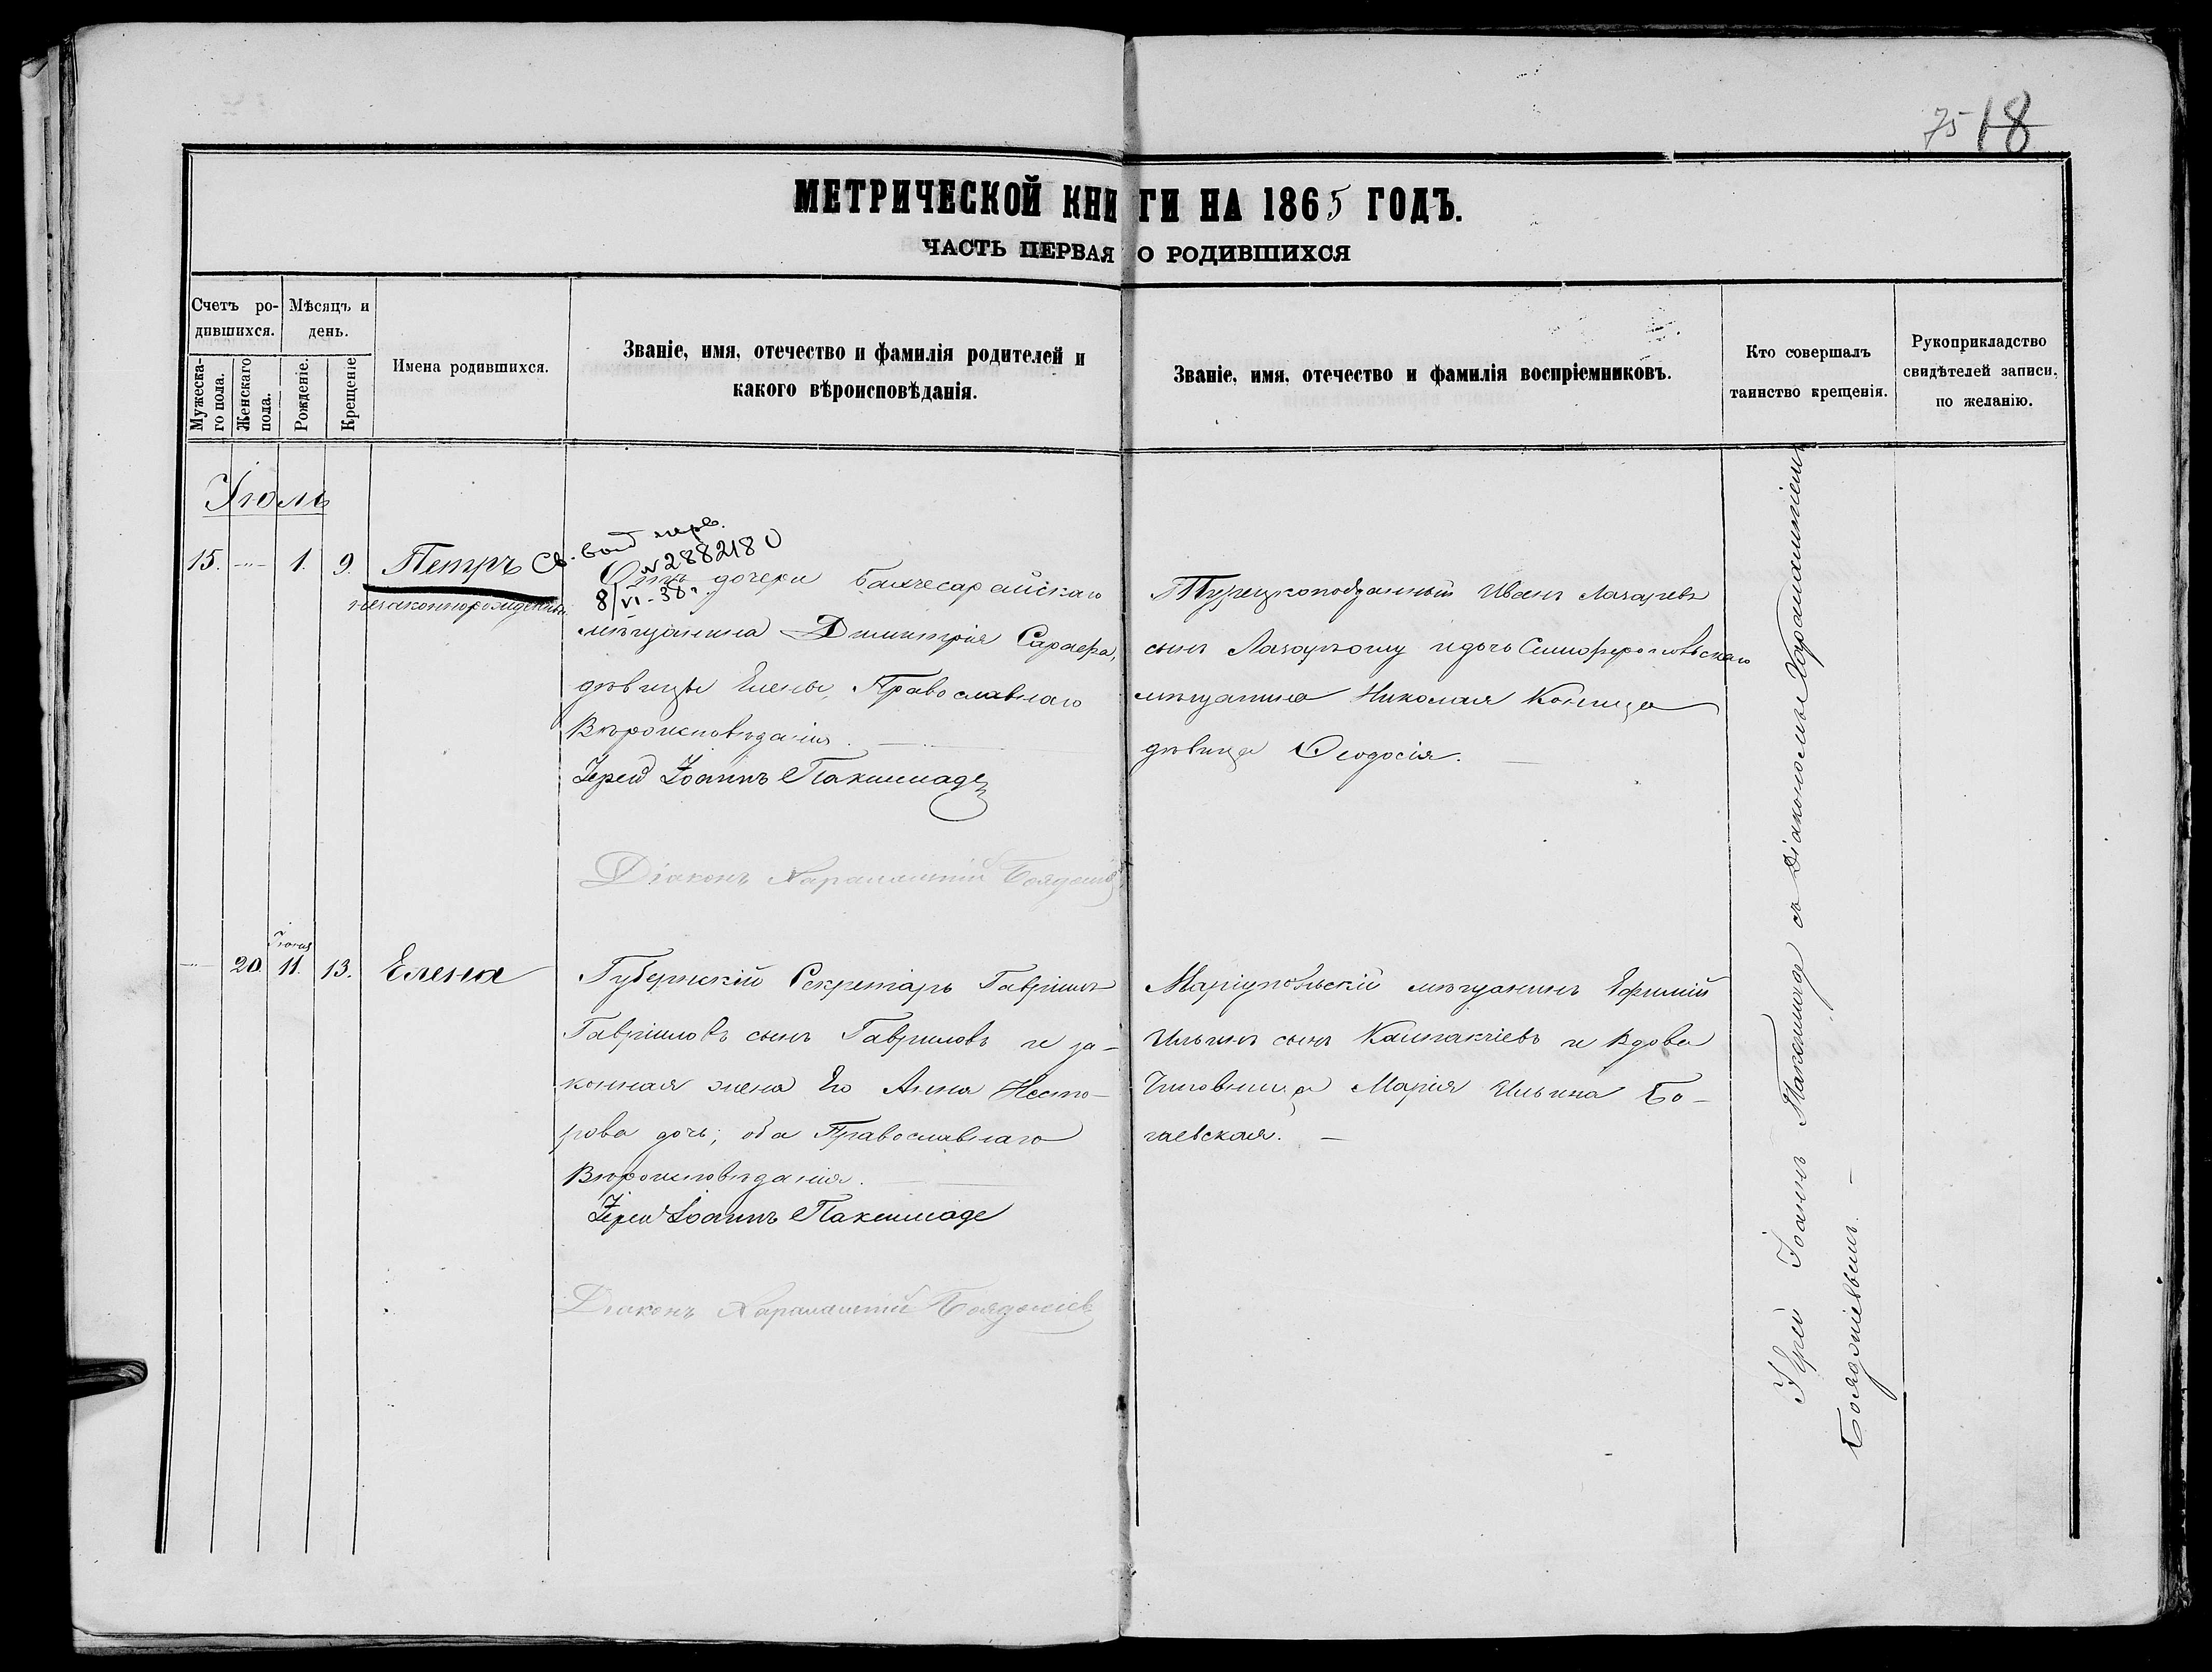 75 18
МЕТРИЧЕСКОЙ КНИГИ НА 1865 ГОДЪ.
ЧАСТЬ ПЕРВАЯ О РОДИВШИХСЯ
Счетъ ро-
дившихся.
Мужеска-
го пола.
Женскаго
пола.
Мѣсяцъ и
день.
Рожденіе.
Крещеніе
Имена родившихся.
Званіе, имя, отечество и фамилія родителей и
какого вѣроисповѣданія.
Званіе, имя, отечество и фамилія воспріемниковъ.
Кто совершалъ
таинство крещенія.
Рукоприкладство
свидѣтелей записи,
по желанію.
Іюль
15. 1. 9. Петръ
незаконнорожденный
Св.
N 288218
8/VI-38 г.
Отъ дочери Бахчесарайскаго
мѣщанина Димитрія
дѣвицы Елены, Православнаго
Вѣроисповѣданія.
Іерей Іоаннъ Паксимаде
Діаконъ Харалампій Бояджіев
Турецкоподданный Иванъ Лазаревъ
сынъ и дочь Симферопольскаго
мѣщанина Николая
дѣвица Ѳеодосія.
20. Іюня 11. 13. Елена
Губернскій Секретарь Гавріилъ
Гавріиловъ сынъ Гавриловъ и за-
конная жена Его Анна Несто-
рова дочь, оба Православнаго
Вѣроисповѣданія.
Іерей Іоаннъ Паксимаде
Діаконъ Харалампій Бояджіев
Маріупольскій мѣщанинъ Ефимій
Ильинъ сынъ и Вдова
Чиновница Марія Ильина Бо-
гаевская.
Іерей Іоаннъ Паксимаде съ Діакономъ Харалампіемъ
Бояджіевымъ.